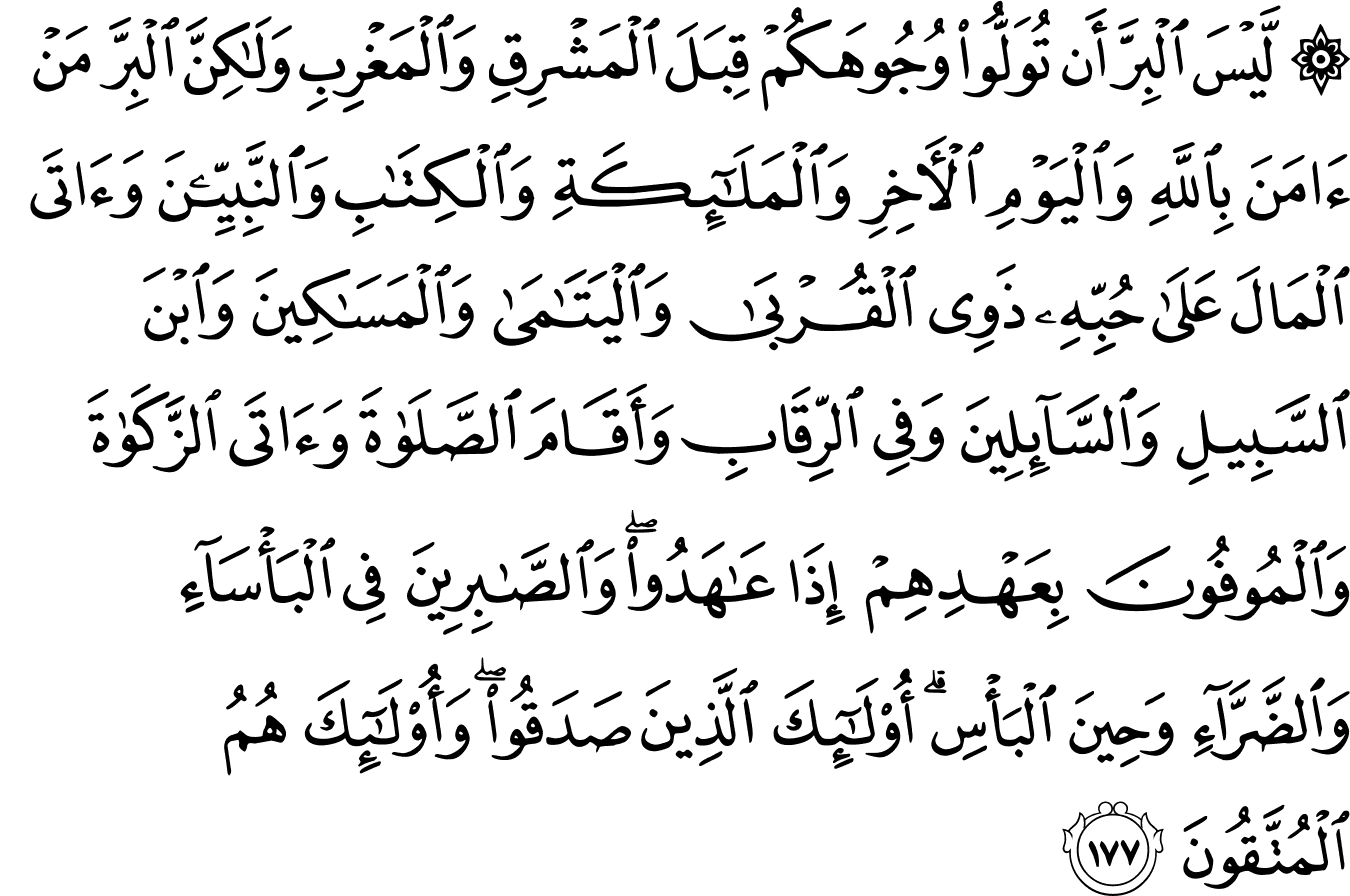 ۞ لَّيْسَ ٱلْبِرَّ أَن تُوَلُّوا۟ وُجُوهَكُمْ قِبَلَ ٱلْمَشْرِقِ وَٱلْمَغْرِبِ وَلَـٰكِنَّ ٱلْبِرَّ مَنْ
ءَامَنَ بِٱللَّهِ وَٱلْيَوْمِ ٱلْـَٔاخِرِ وَٱلْمَلَـٰٓئِكَةِ وَٱلْكِتَـٰبِ وَٱلنَّبِيِّـۧنَ وَءَاتَى
ٱلْمَالَ عَلَىٰ حُبِّهِۦ ذَوِى ٱلْقُرْبَىٰ وَٱلْيَتَـٰمَىٰ وَٱلْمَسَـٰكِينَ وَٱبْنَ
ٱلسَّبِيلِ وَٱلسَّآئِلِينَ وَفِى ٱلرِّقَابِ وَأَقَامَ ٱلصَّلَوٰةَ وَءَاتَى ٱلزَّكَوٰةَ
وَٱلْمُوفُونَ بِعَهْدِهِمْ إِذَا عَـٰهَدُوا۟ ۖ وَٱلصَّـٰبِرِينَ فِى ٱلْبَأْسَآءِ
وَٱلضَّرَّآءِ وَحِينَ ٱلْبَأْسِ ۗ أُو۟لَـٰٓئِكَ ٱلَّذِينَ صَدَقُوا۟ ۖ وَأُو۟لَـٰٓئِكَ هُمُ
ٱلْمُتَّقُونَ ١٧٧